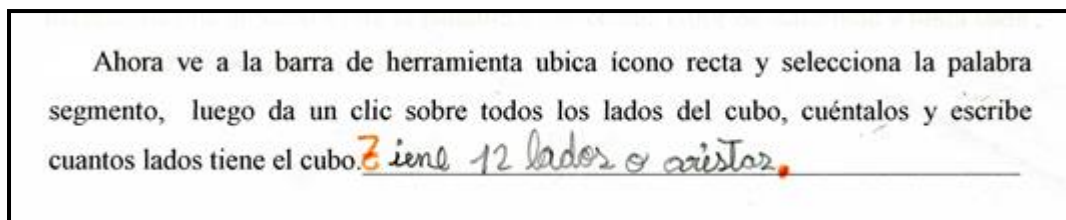 Ahora ve a la barra de herramienta ubica ícono recta y selecciona la palabra
segmento, luego da un clic sobre todos los lados del cubo, cuéntalos y escribe
cuantos lados tiene el cubo. Tiene 12 lados o aristas.